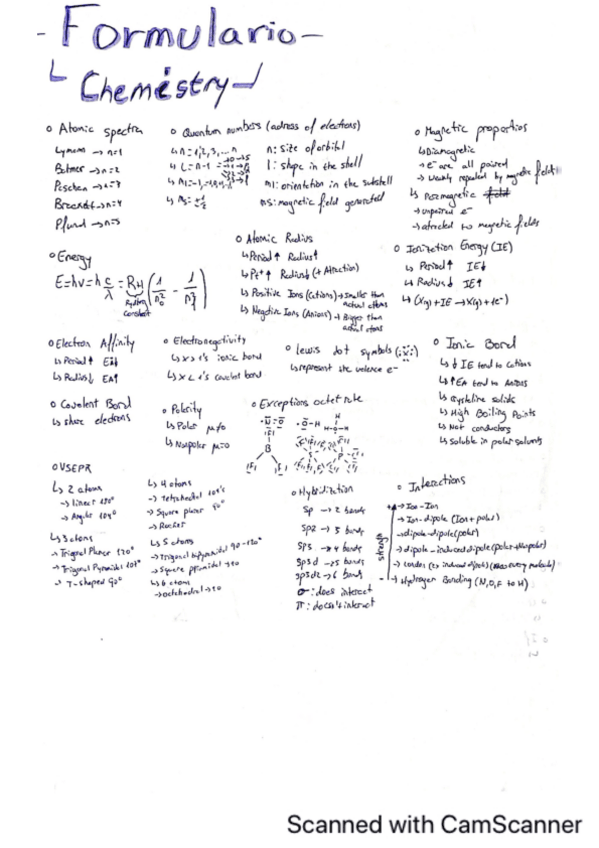 - Formulario -
↳ Chemistry
◦ Atomic spectra
Lymann → n=1
Balmer → n=2
Paschen → n=3
Brackett → n=4
Pfund → n=5
◦ Quantum numbers (adress of electrons)
↳ n=1,2,3,...n
↳ l=n-1
n: size of orbital
l: shape in the shell
ml: orientation in the subshell
ms: magnetic field generated
◦ Magnetic proportios
↳ Diamagnetic
→ e⁻ are all paired
→ weakly repealed by magnetic field
↳ Paramagnetic
→ unpaired e⁻
→ atracted to magnetic fields
◦ Energy
E=hv=h c/λ = RH (1/n²o - 1/n²f)
Rydberg constant
◦ Atomic Radius
↳ Period↑ Radius↑
↳ Pe⁺↑ Radius↓ (+ Atraction)
↳ Positive Ions (Cations) → Smaller than actual atoms
↳ Negative Ions (Anions) → Bigger than actual atoms
◦ Ionization Energy (IE)
↳ Period↑ IE↓
↳ Radius↓ IE↑
↳ (X(g) + IE → X(g) + 1e⁻)
◦ Electron Affinity
↳ Period↑ EA↓
↳ Radius↓ EA↑
◦ Electronegativity
↳ x > 1's ionic bond
↳ x < 1's covalent bond
◦ lewis dot symbols (:x:)
↳ represent the valence e⁻
◦ Ionic Bond
↳ ↓ IE tend to Cations
↳ ↑ EA tend to Anions
↳ Crystaline solids
↳ High Boiling Points
↳ Not conductors
↳ soluble in polar solvants
◦ Covalent Bond
↳ share electrons
◦ Polarity
↳ Polar μ≠0
↳ Nonpolar μ=0
◦ Exceptions octet rule
◦ VSEPR
↳ 2 atoms
→ linear 180°
→ Angular 104°
↳ 3 atoms
→ Trigonal Planar 120°
→ Trigonal Pyramidal 107°
→ T-shaped 90°
↳ 4 atoms
→ Tetrahedral 109's
→ Square planar 90°
↳ 5 atoms
→ Trigonal bipyramidal 90-120°
→ Square piramidal → 90
↳ 6 atoms
→ octahedral → 90
◦ Hybridization
Sp → 2 bonds
Sp2 → 3 bonds
Sp3 → 4 bonds
Sp3d → 5 bonds
sp3d2 → 6 bonds
σ: does interect
π: does't interect
◦ Interactions
strength
→ Ion-Ion
→ Ion-dipole (Ion + polar)
→ dipole-dipole (polar)
→ dipole-induced dipole (polar+Nonpolar)
→ Hydrogen Bonding (N,O,F to H)
Scanned with CamScanner